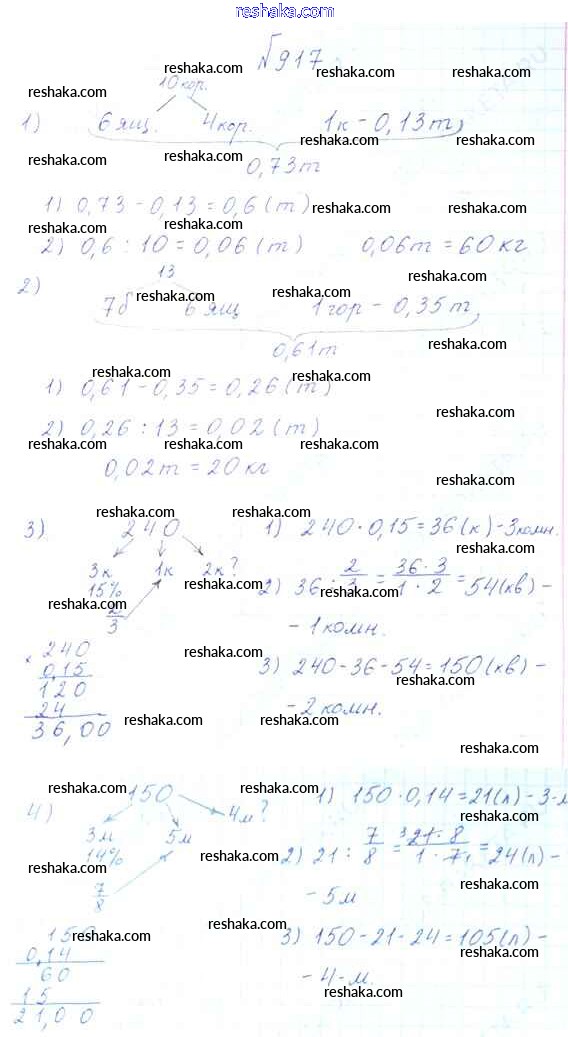 reshaka.com
№917
10 кор.
1) 6 ящ. 4 кор. 1к - 0,13т,
0,73т
1) 0,73 - 0,13 = 0,6 (т)
2) 0,6 : 10 = 0,06 (т) 0,06т = 60 кг
13
2) 7б 6 ящ 1 гор - 0,35т,
0,61т
1) 0,61 - 0,35 = 0,26 (т)
2) 0,26 : 13 = 0,02 (т)
0,02т = 20 кг
3) 240
3к 1к 2к?
15%
2/3
240
× 0,15
120
24
36,00
1) 240 · 0,15 = 36 (к) - 3комн.
2) 36 : 2/3 = 36 · 3 / 1 · 2 = 54 (кв) -
- 1 комн.
3) 240 - 36 - 54 = 150 (кв) -
- 2 комн.
4) 150
3м 5м 4м?
14%
7/8
150
0,14
60
15
21,00
1) 150 · 0,14 = 21 (л) - 3-м
2) 21 : 7/8 = 21 · 8 / 1 · 7 = 24 (л) -
- 5м
3) 150 - 21 - 24 = 105 (л) -
- 4-м.
reshaka.com